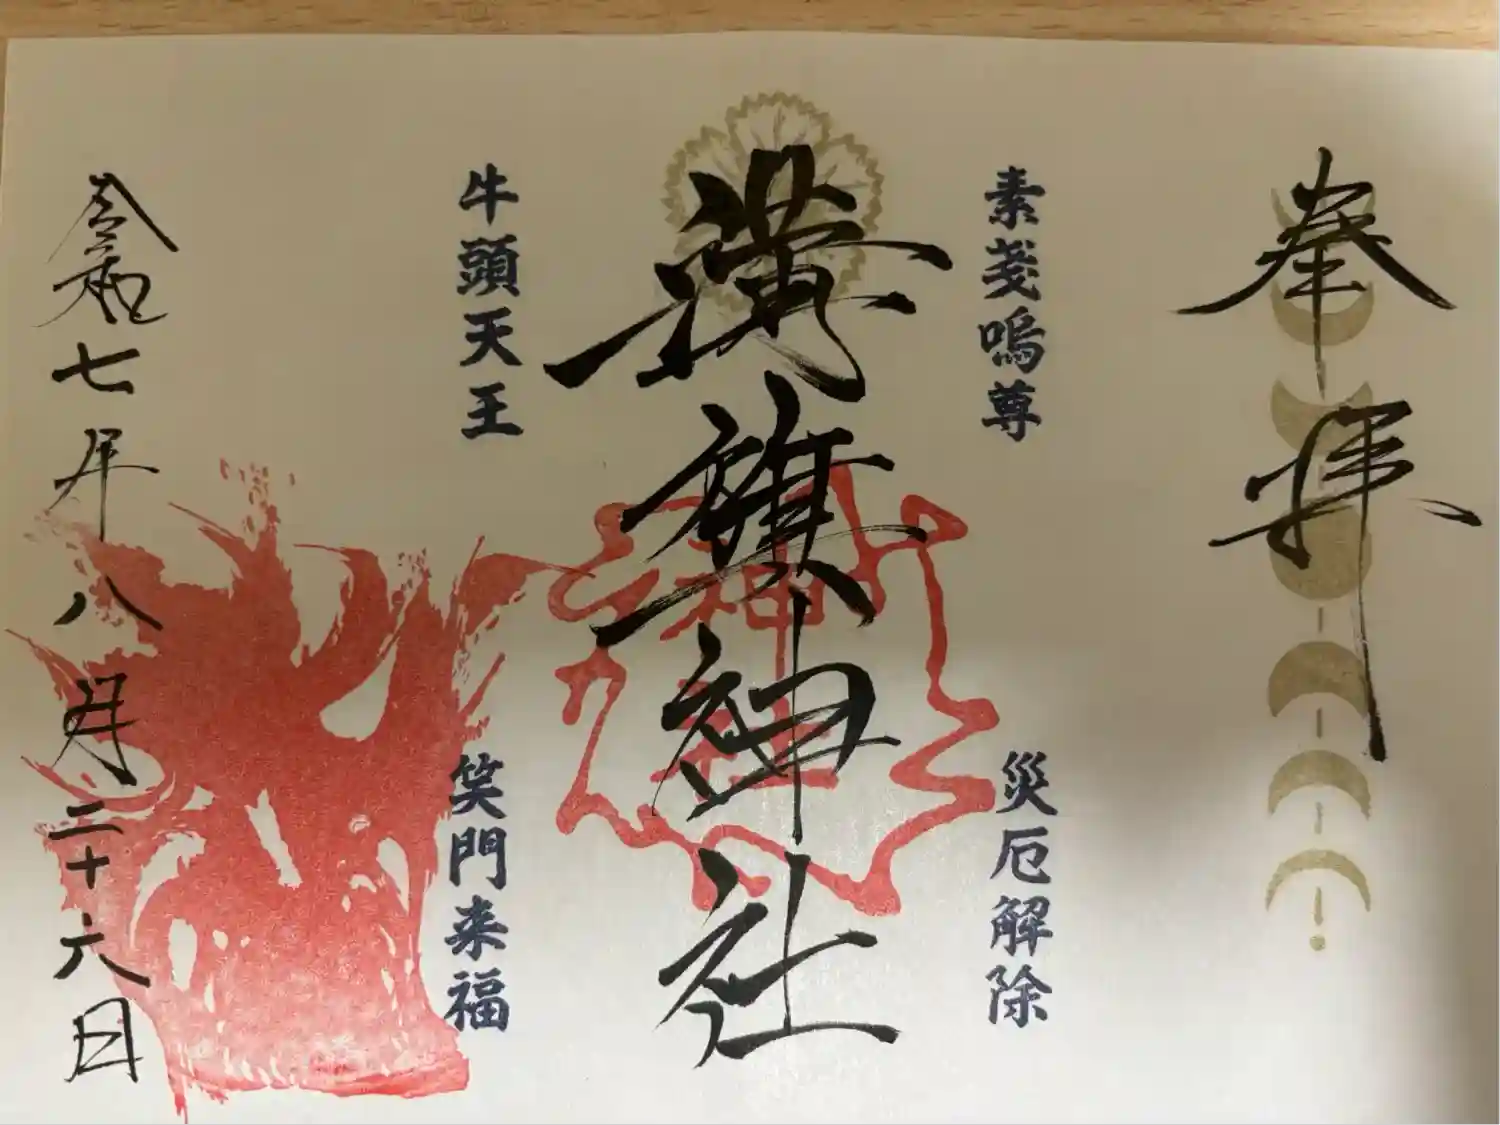 奉拝
素戔嗚尊
災厄解除
溝旗神社
神社
牛頭天王
笑門来福
令和七年八月二十六日